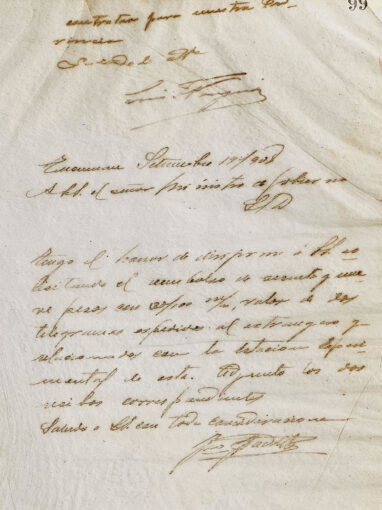 99
contratar para nuestra Pro-
vincia
Tucuman Setiembre 19/908
A S.E. el señor Ministro de Gobierno
S/D
Tengo el honor de dirigirme á S.E. so-
licitando el reembolso de sesenta y nue-
ve pesos con m/n, valor de dos
telegramas espedidos al extranjero y
relacionados con la Estacion Esperi-
mental de esta. Adjunto los dos
recibos correspondientes
Saludo a S.E. con toda consideracion